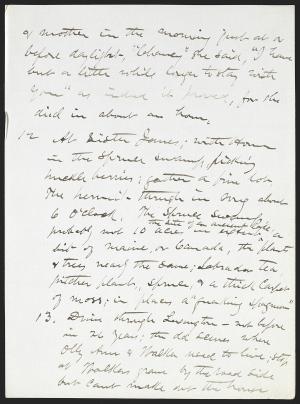 of mother in the morning just at or
before daylight, "Chauncy" she said, "I have
but a little while longer to stay with
you" as indeed it proved, for she
died in about an hour.
12 At Sister Janes; with Homer
in the Spruce swamp, picking
huckleberries; gather a fine lot.
The permit through in Aug about
6 O'Clock. The Spruce Swamp,
probably not 10 acres, the site of an ancient lake, a
bit of maine, or Canada, the plants
& trees near the same; Labrador tea,
pitcher plants, Spruce, & a thick Carpet
of moss; in places a "quaking Spagnum"
13. Drive through Lexington – not before
in 26 years; the old scenes where
Olly Ann & Walker used to live; stop
at Walkers grave by the road side
but can't make out the house